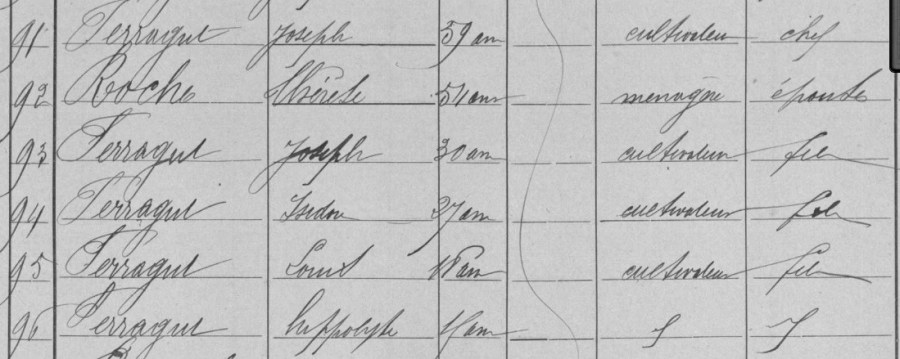 91 Ferragut Joseph 59 ans cultivateur chef
92 Roche Thérèse 54 ans menagère épouse
93 Ferragut Joseph 30 ans cultivateur fils
94 Ferragut Isidore 27 ans cultivateur fils
95 Ferragut Louis 18 ans cultivateur fils
96 Ferragut hippolyte ans